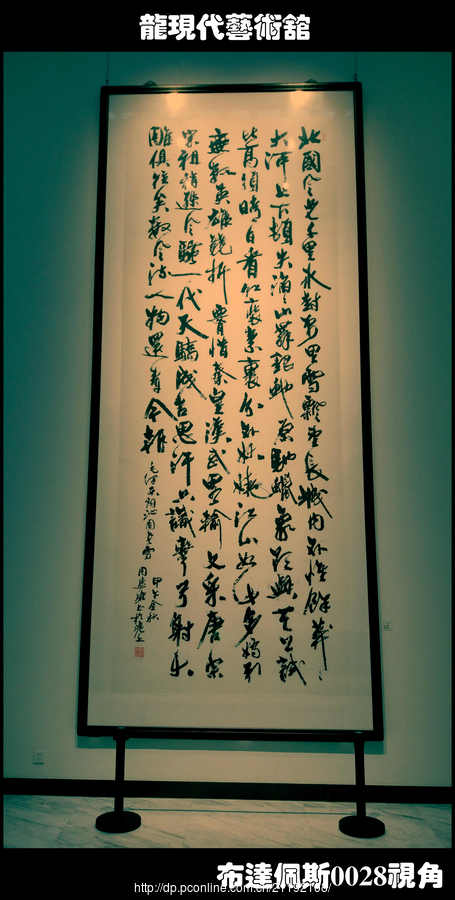 龍現代藝術舘
北國風光千里冰封萬里雪飄望長城內外惟餘莽莽
大河上下頓失滔滔山舞銀蛇原馳蠟象欲與天公試
比高須晴日看紅裝素裹分外妖嬈江山如此多嬌引
無數英雄競折腰惜秦皇漢武略輸文采唐宗
宋祖稍遜風騷一代天驕成吉思汗只識彎弓射大
雕俱往矣數風流人物還看今朝
毛澤東詞沁園春雪
甲午金秋
布達佩斯0028視角